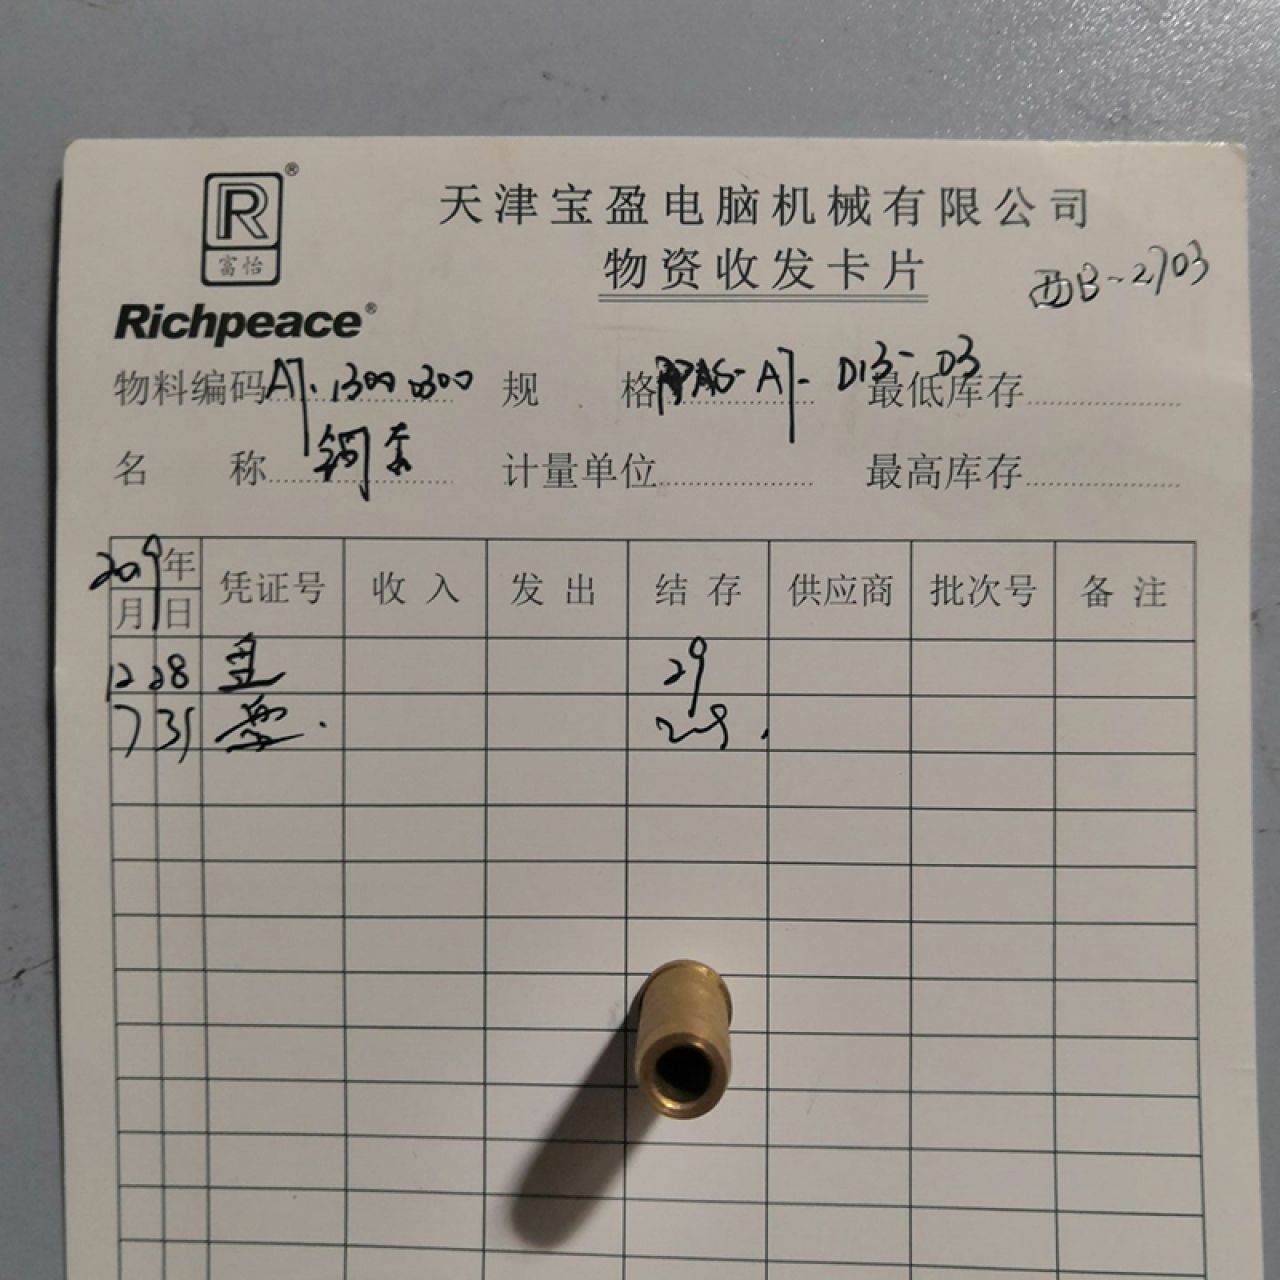 R
®
富怡
Richpeace®
天津宝盈电脑机械有限公司
物资收发卡片
西B-2703
物料编码 A7.1300 0300 规 格 A7- D13-03 最低库存
名 称 铜套 计量单位 最高库存
2019年 凭证号 收入 发出 结存 供应商 批次号 备注
月 日
12 28 29
7 31